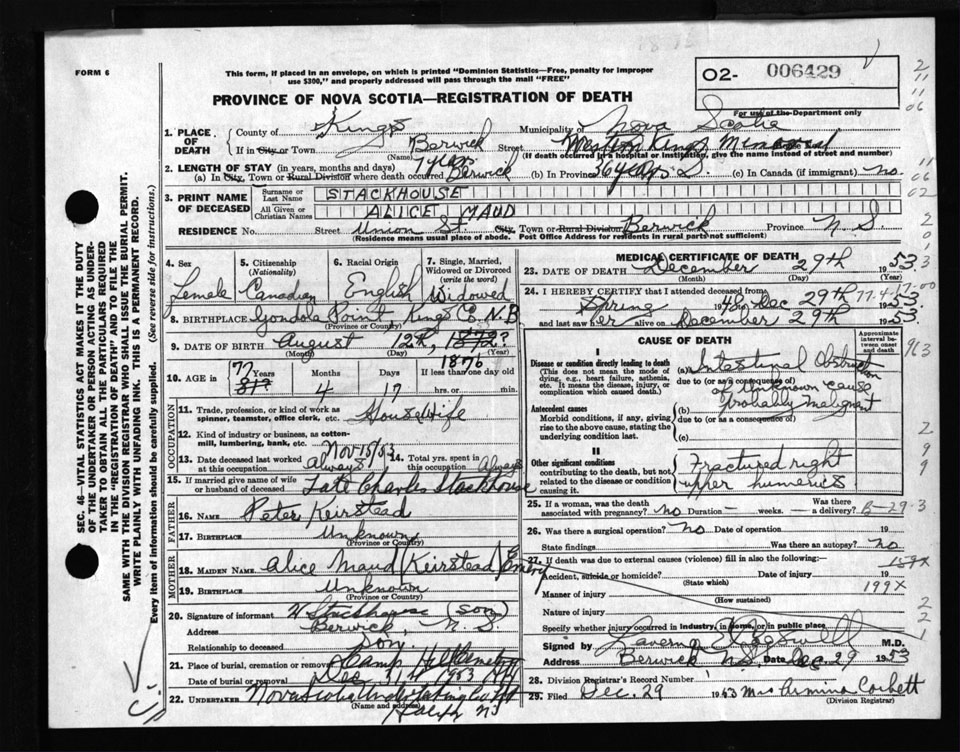 FORM 6
This form, if placed in an envelope, on which is printed "Dominion Statistics—Free, penalty for improper
use $300," and properly addressed will pass through the mail "FREE"
O2- 006429
PROVINCE OF NOVA SCOTIA—REGISTRATION OF DEATH
For use of the Department only
2
11
11
06
1. PLACE OF DEATH
County of Kings Municipality of Nova Scotia
If in City or Town Berwick Street Western Kings Memorial
(Name) (If death occurred in a hospital or institution, give the name instead of street and number)
2. LENGTH OF STAY (in years, months and days)
(a) In City, Town or Rural Division where death occurred 7 years Berwick (b) In Province 36 years (c) In Canada (if immigrant) no.
11
06
02
3. PRINT NAME OF DECEASED
Surname or Last Name STACKHOUSE
All Given or Christian Names ALICE MAUD
RESIDENCE No. Street Union St. City, Town or Rural Division Berwick Province N.S.
(Residence means usual place of abode. Post Office Address for residents in rural parts not sufficient)
2
0
1
SEC. 46—VITAL STATISTICS ACT MAKES IT THE DUTY
OF THE UNDERTAKER OR PERSON ACTING AS UNDER-
TAKER TO OBTAIN ALL THE PARTICULARS REQUIRED
IN THE "REGISTRATION OF DEATH" AND TO FILE THE
SAME WITH THE DIVISION REGISTRAR WHO SHALL ISSUE THE BURIAL PERMIT.
WRITE PLAINLY WITH UNFADING INK. THIS IS A PERMANENT RECORD.
Every item of information should be carefully supplied. (See reverse side for instructions.)
4. Sex Female
5. Citizenship (Nationality) Canadian
6. Racial Origin English
7. Single, Married, Widowed or Divorced (write the word) Widowed
8. BIRTHPLACE Gondola Point Kings Co. N.B
(Province or Country)
9. DATE OF BIRTH August 12th, 1872? 1876
(Month) (Day) (Year)
10. AGE in 77 81? Years 4 Months 7 Days If less than one day old hrs. or min.
OCCUPATION
11. Trade, profession, or kind of work as spinner, teamster, office clerk, etc. House Wife
12. Kind of industry or business, as cotton-mill, lumbering, bank, etc.
13. Date deceased last worked at this occupation Nov 15/53 Always 14. Total yrs. spent in this occupation Always
15. If married give name of wife or husband of deceased Late Charles Stackhouse
FATHER
16. NAME Peter Keirstead
17. BIRTHPLACE Unknown
(Province or Country)
MOTHER
18. MAIDEN NAME Alice Maud (Keirstead) Emery
19. BIRTHPLACE Unknown
(Province or Country)
20. Signature of informant Stackhouse (son)
Address Berwick, N.S.
Relationship to deceased Son.
21. Place of burial, cremation or removal Camp Hill Cemetery
Date of burial or removal Dec 31st 1953
22. UNDERTAKER Nova Scotia Undertaking Co
(Name and address) Halifax NS
MEDICAL CERTIFICATE OF DEATH
23. DATE OF DEATH December 29th 1953.
(Month) (Day) (Year)
24. I HEREBY CERTIFY that I attended deceased from
Spring 1948 to Dec 29th 1953.
and last saw her alive on December 29th 1953.
CAUSE OF DEATH
Approximate interval between onset and death
I
Disease or condition directly leading to death
(This does not mean the mode of dying, e.g., heart failure, asthenia, etc. It means the disease, injury, or complication which caused death.)
(a) Intestinal Obstruction
due to (or as a consequence of) of Unknown cause
Antecedent causes
Morbid conditions, if any, giving rise to the above cause, stating the underlying condition last.
(b) probably malignant
due to (or as a consequence of)
(c)
II
Other significant conditions
contributing to the death, but not related to the disease or condition causing it.
Fractured right
upper humerus
25. If a woman, was the death associated with pregnancy? no Duration — weeks. Was there a delivery?
26. Was there a surgical operation? no Date of operation 19
State findings Was there an autopsy? no
27. If death was due to external causes (violence) fill in also the following:
Accident, suicide or homicide? Date of injury 19
(State which)
Manner of injury 199X
(How sustained)
Nature of injury
Specify whether injury occurred in industry, in home, or in public place
Signed by M.D.
Address Berwick N.S. Date Dec. 29 1953
28. Division Registrar's Record Number
29. Filed Dec. 29 1953 Mrs Armina Corbett
(Division Registrar)